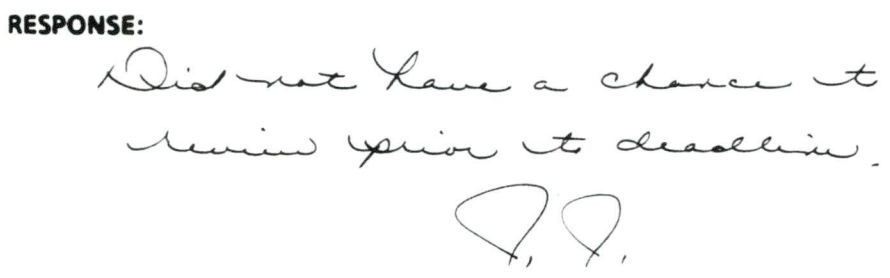 RESPONSE:
Did not have a chance to
review prior to deadline.
J. J.